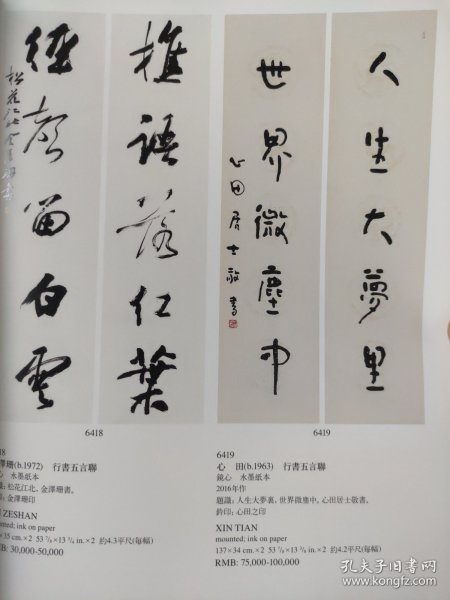 樵語落紅葉
經聲留白雲
松花江北金澤珊書
人生大夢里
世界微塵中
心田居士敬書
6418
6419
18
澤珊(b.1972) 行書五言聯
心 水墨紙本
識：松花江北，金澤珊書。
印：金澤珊印
ZESHAN
mounted; ink on paper
× 35 cm.×2 53 7/8×13 3/4 in.×2 約4.3平尺(每幅)
MB: 30,000-50,000
6419
心 田(b.1963) 行書五言聯
鏡心 水墨紙本
2016年作
題識：人生大夢裏，世界微塵中。心田居士敬書。
鈐印：心田之印
XIN TIAN
mounted; ink on paper
137×34 cm.×2 53 7/8×13 3/8 in.×2 約4.2平尺(每幅)
RMB: 75,000-100,000
孔夫子旧书网
www.kongfz.com